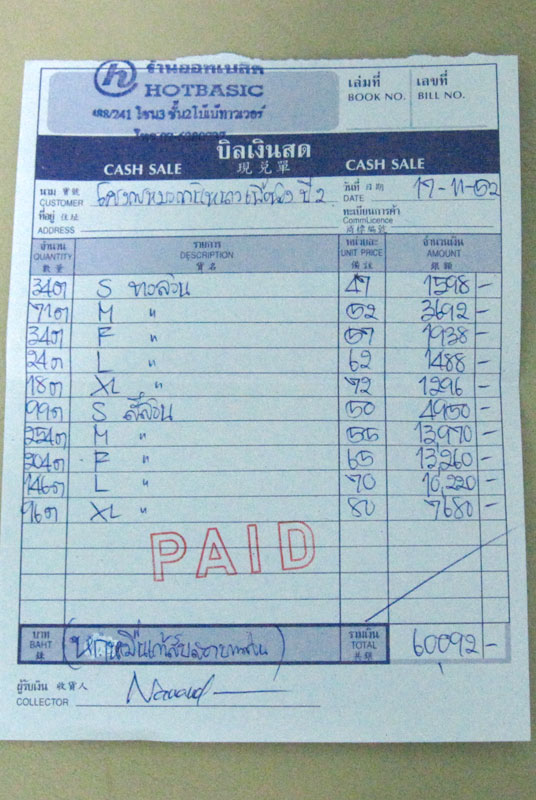 ร้านฮอทเบสิค
HOTBASIC
488/241 โซน3 ชั้น2โบ๊เบ๊ทาวเวอร์
เล่มที่ เลขที่
BOOK NO. BILL NO.
บิลเงินสด
CASH SALE 現兌單 CASH SALE
นาม 寶號 วันที่ 日期 17-11-52
CUSTOMER ปี 2 DATE
ที่อยู่ 住址 ทะเบียนการค้า
ADDRESS CommLicence
商標編號
จำนวน รายการ หน่วยละ จำนวนเงิน
QUANTITY DESCRIPTION UNIT PRICE AMOUNT
數量 貨名 備註 銀額
34ต S ขาวล้วน 47 1598 -
71ต M " 52 3692 -
34ต F " 57 1938 -
24ต L " 62 1488 -
18ต XL " 72 1296 -
99ต S สีล้วน 50 4950 -
254ต M " 55 13,970 -
204ต F " 65 13,260 -
146ต L " 70 10,220 -
96ต XL " 80 7680 -
PAID
บาท (หกหมื่นเก้าสิบสองบาทถ้วน) รวมเงิน 60092 -
BAHT TOTAL
銖 共銀
ผู้รับเงิน 收貨人
COLLECTOR